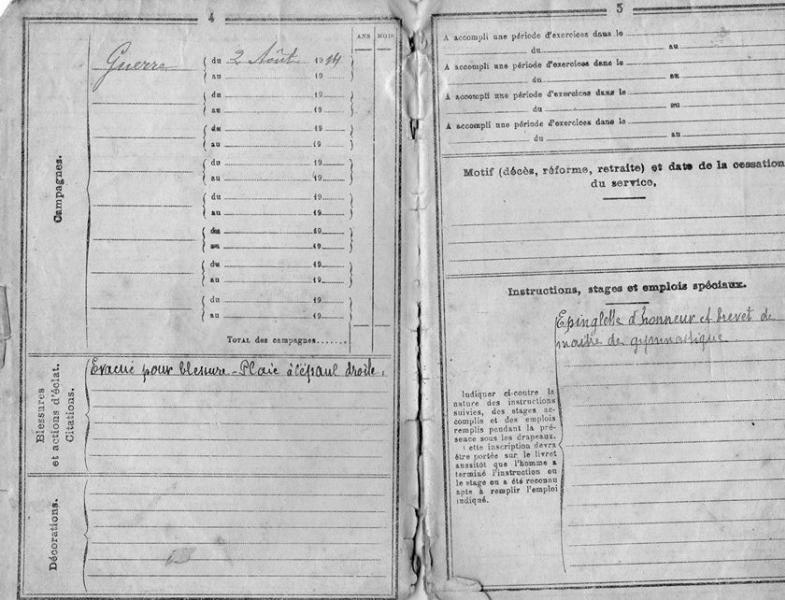 4
ANS MOIS
Guerre du 2 Août 1914
au 19
du 19
au 19
du 19
au 19
du 19
au 19
du 19
au 19
du 19
au 19
du 19
au 19
du 19
au 19
TOTAL des campagnes
Campagnes.
Blessures
et actions d'éclat.
Citations.
Evacué pour blessure - Plaie à l'épaul droite.
Décorations.
5
A accompli une période d'exercices dans le
du au
A accompli une période d'exercices dans le
du au
A accompli une période d'exercices dans le
du au
A accompli une période d'exercices dans le
du au
Motif (décès, réforme, retraite) et date de la cessation
du service,
Instructions, stages et emplois spéciaux.
Epinglette d'honneur et brevet de
maître de gymnastique
Indiquer ci-contre la
nature des instructions
suivies, des stages ac-
complis et des emplois
remplis pendant la pré-
sence sous les drapeaux.
Cette inscription devra
être portée sur le livret
aussitôt que l'homme a
terminé l'instruction ou
le stage ou a été reconnu
apte à remplir l'emploi
indiqué.